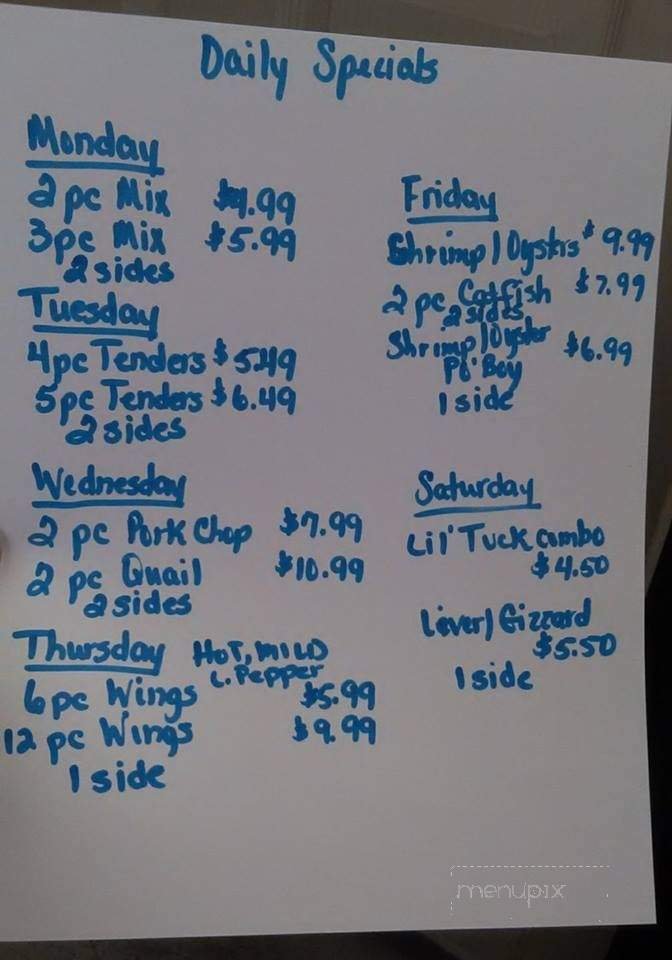 Daily Specials
Monday
2 pc Mix $4.99
3 pc Mix $5.99
2 sides
Tuesday
4 pc Tenders $5.49
5 pc Tenders $6.49
2 sides
Wednesday
2 pc Pork Chop $7.99
2 pc Quail $10.99
2 sides
Thursday Hot, Mild
L. Pepper
6 pc Wings $5.99
12 pc Wings $9.99
1 side
Friday
Shrimp/Oysters $9.99
2 pc Catfish $7.99
2 sides
Shrimp/Oyster
Po' Boy $6.99
1 side
Saturday
Lil' Tuck combo
$4.50
Liver/Gizzard
$5.50
1 side
menupix